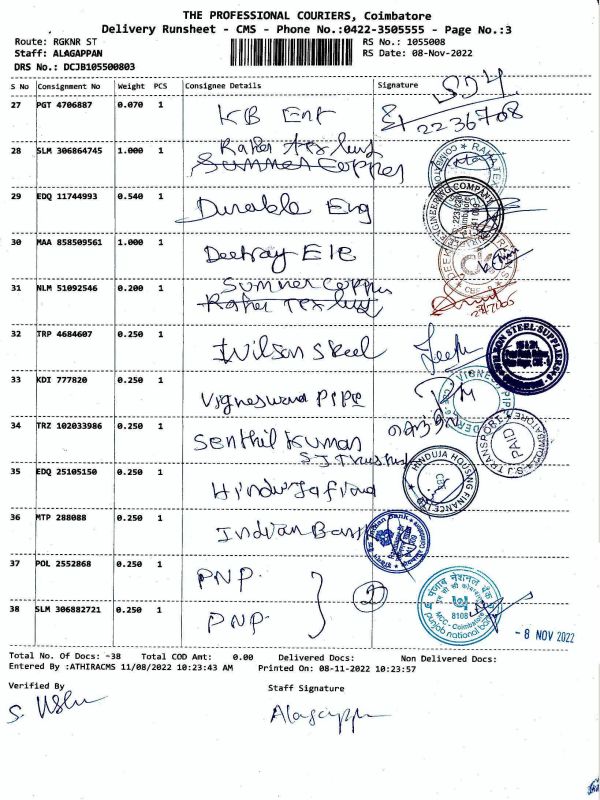 THE PROFESSIONAL COURIERS, Coimbatore
Delivery Runsheet - CMS - Phone No.:0422-3505555 - Page No.:3
Route: RGKNR ST RS No.: 1055008
Staff: ALAGAPPAN RS Date: 08-Nov-2022
DRS No.: DCJB105500803
S No Consignment No Weight PCS Consignee Details Signature
27 PGT 4706887 0.070 1 KB Ent
2236708
28 SLM 306864745 1.000 1
29 EDQ 11744993 0.540 1 Durable Eng
30 MAA 858509561 1.000 1
31 NLM 51092546 0.200 1
32 TRP 4684607 0.250 1 Wilson Steel
WILSON STEEL SUPPLIERS
33 KDI 777820 0.250 1 Vigneswara Pipe
34 TRZ 102033986 0.250 1 Senthil Kumar
S.J. TRANSPORT PAID
35 EDQ 25105150 0.250 1
HINDUJA HOUSING FINANCE LTD CBE
36 MTP 288088 0.250 1 Indian Bank
37 POL 2552868 0.250 1 PNP.
2
38 SLM 306882721 0.250 1 PNP.
पंजाब नैशनल बैंक
8108
MCC - Coimbatore
punjab national bank
- 8 NOV 2022
Total No. Of Docs: -38 Total COD Amt: 0.00 Delivered Docs: Non Delivered Docs:
Entered By :ATHIRACMS 11/08/2022 10:23:43 AM Printed On: 08-11-2022 10:23:57
Verified By Staff Signature
Alagappn